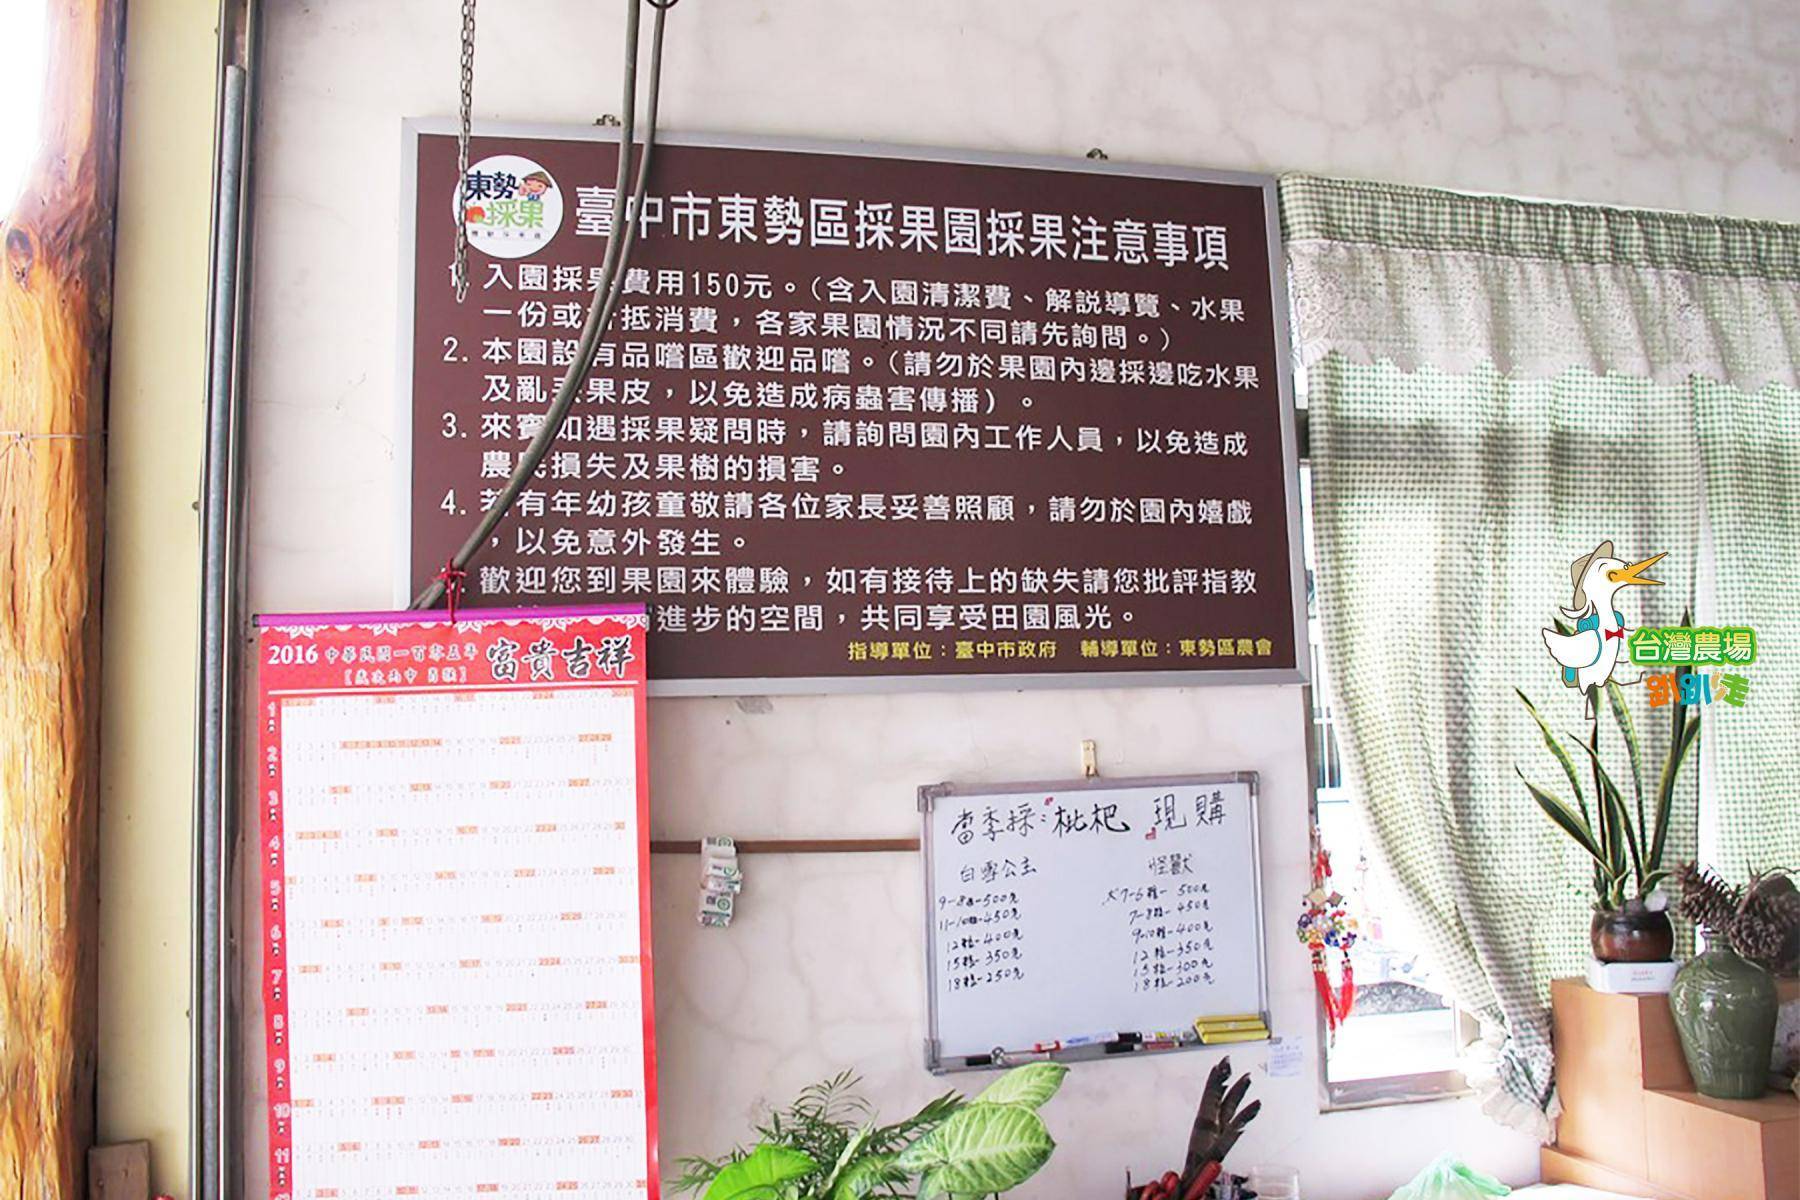 東勢
採果
臺中市東勢區採果園採果注意事項
1. 入園採果費用150元。(含入園清潔費、解說導覽、水果
一份或可抵消費，各家果園情況不同請先詢問。)
2. 本園設有品嚐區歡迎品嚐。(請勿於果園內邊採邊吃水果
及亂丟果皮，以免造成病蟲害傳播)。
3. 來賓如遇採果疑問時，請詢問園內工作人員，以免造成
農民損失及果樹的損害。
4. 若有年幼孩童敬請各位家長妥善照顧，請勿於園內嬉戲
，以免意外發生。
歡迎您到果園來體驗，如有接待上的缺失請您批評指教
進步的空間，共同享受田園風光。
指導單位：臺中市政府 輔導單位：東勢區農會
2016 中華民國一百零五年 富貴吉祥
[歲次丙申 肖猴]
1
2
3
4
5
6
7
8
9
10
11
當季採：枇杷 現購
白雪公主 怪獸
9-8粒-500元 大7-6粒-500元
11-10粒-450元 7-8粒-450元
12粒-400元 9-10粒-400元
15粒-350元 12粒-350元
18粒-250元 15粒-300元
18粒-200元
台灣農場
趴趴走